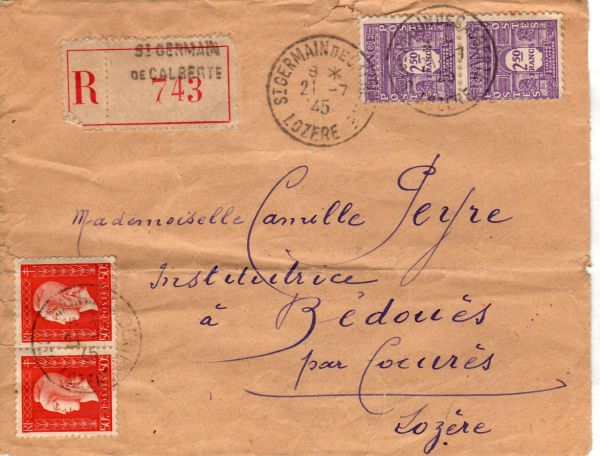 ST GERMAIN
DE CALBERTE
R 743
ST GERMAIN DE C
9 *
21 -7
45
LOZERE
FRANCE
POSTES
2,50
FRANCS
FRANCE
POSTES
2,50
FRANCS
Mademoiselle Camille Peyre
Institutrice
à Bédouès
par Cocurès
Lozère
RF POSTES 50c
RF POSTES 50c